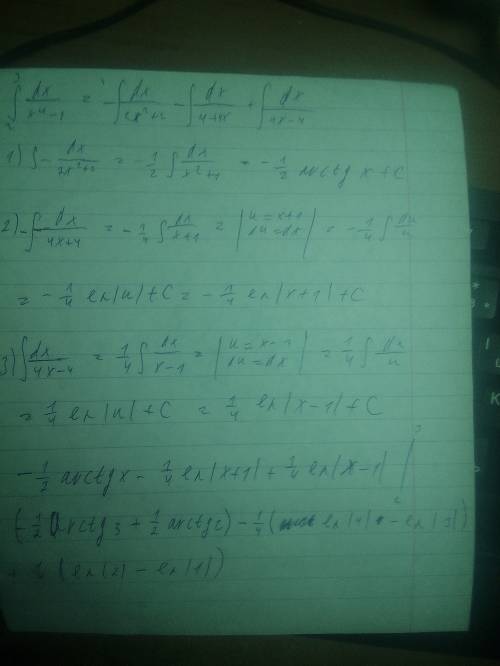 ∫₂³ dx/(x⁴-1) = -∫ dx/(2x²+2) - ∫ dx/(4+4x) + ∫ dx/(4x-4)
1) ∫ - dx/(2x²+2) = -1/2 ∫ dx/(x²+1) = -1/2 arctg x + C
2) -∫ dx/(4x+4) = -1/4 ∫ dx/(x+1) = | u = x+1 du = dx | = -1/4 ∫ du/u
= -1/4 ln|u| + C = -1/4 ln|x+1| + C
3) ∫ dx/(4x-4) = 1/4 ∫ dx/(x-1) = | u = x-1 du = dx | = 1/4 ∫ du/u
= 1/4 ln|u| + C = 1/4 ln|x-1| + C
-1/2 arctg x - 1/4 ln|x+1| + 1/4 ln|x-1| |₂³
(-1/2 arctg 3 + 1/2 arctg 2) - 1/4 (ln|4| - ln|3|)
(ln|2| - ln|1|)